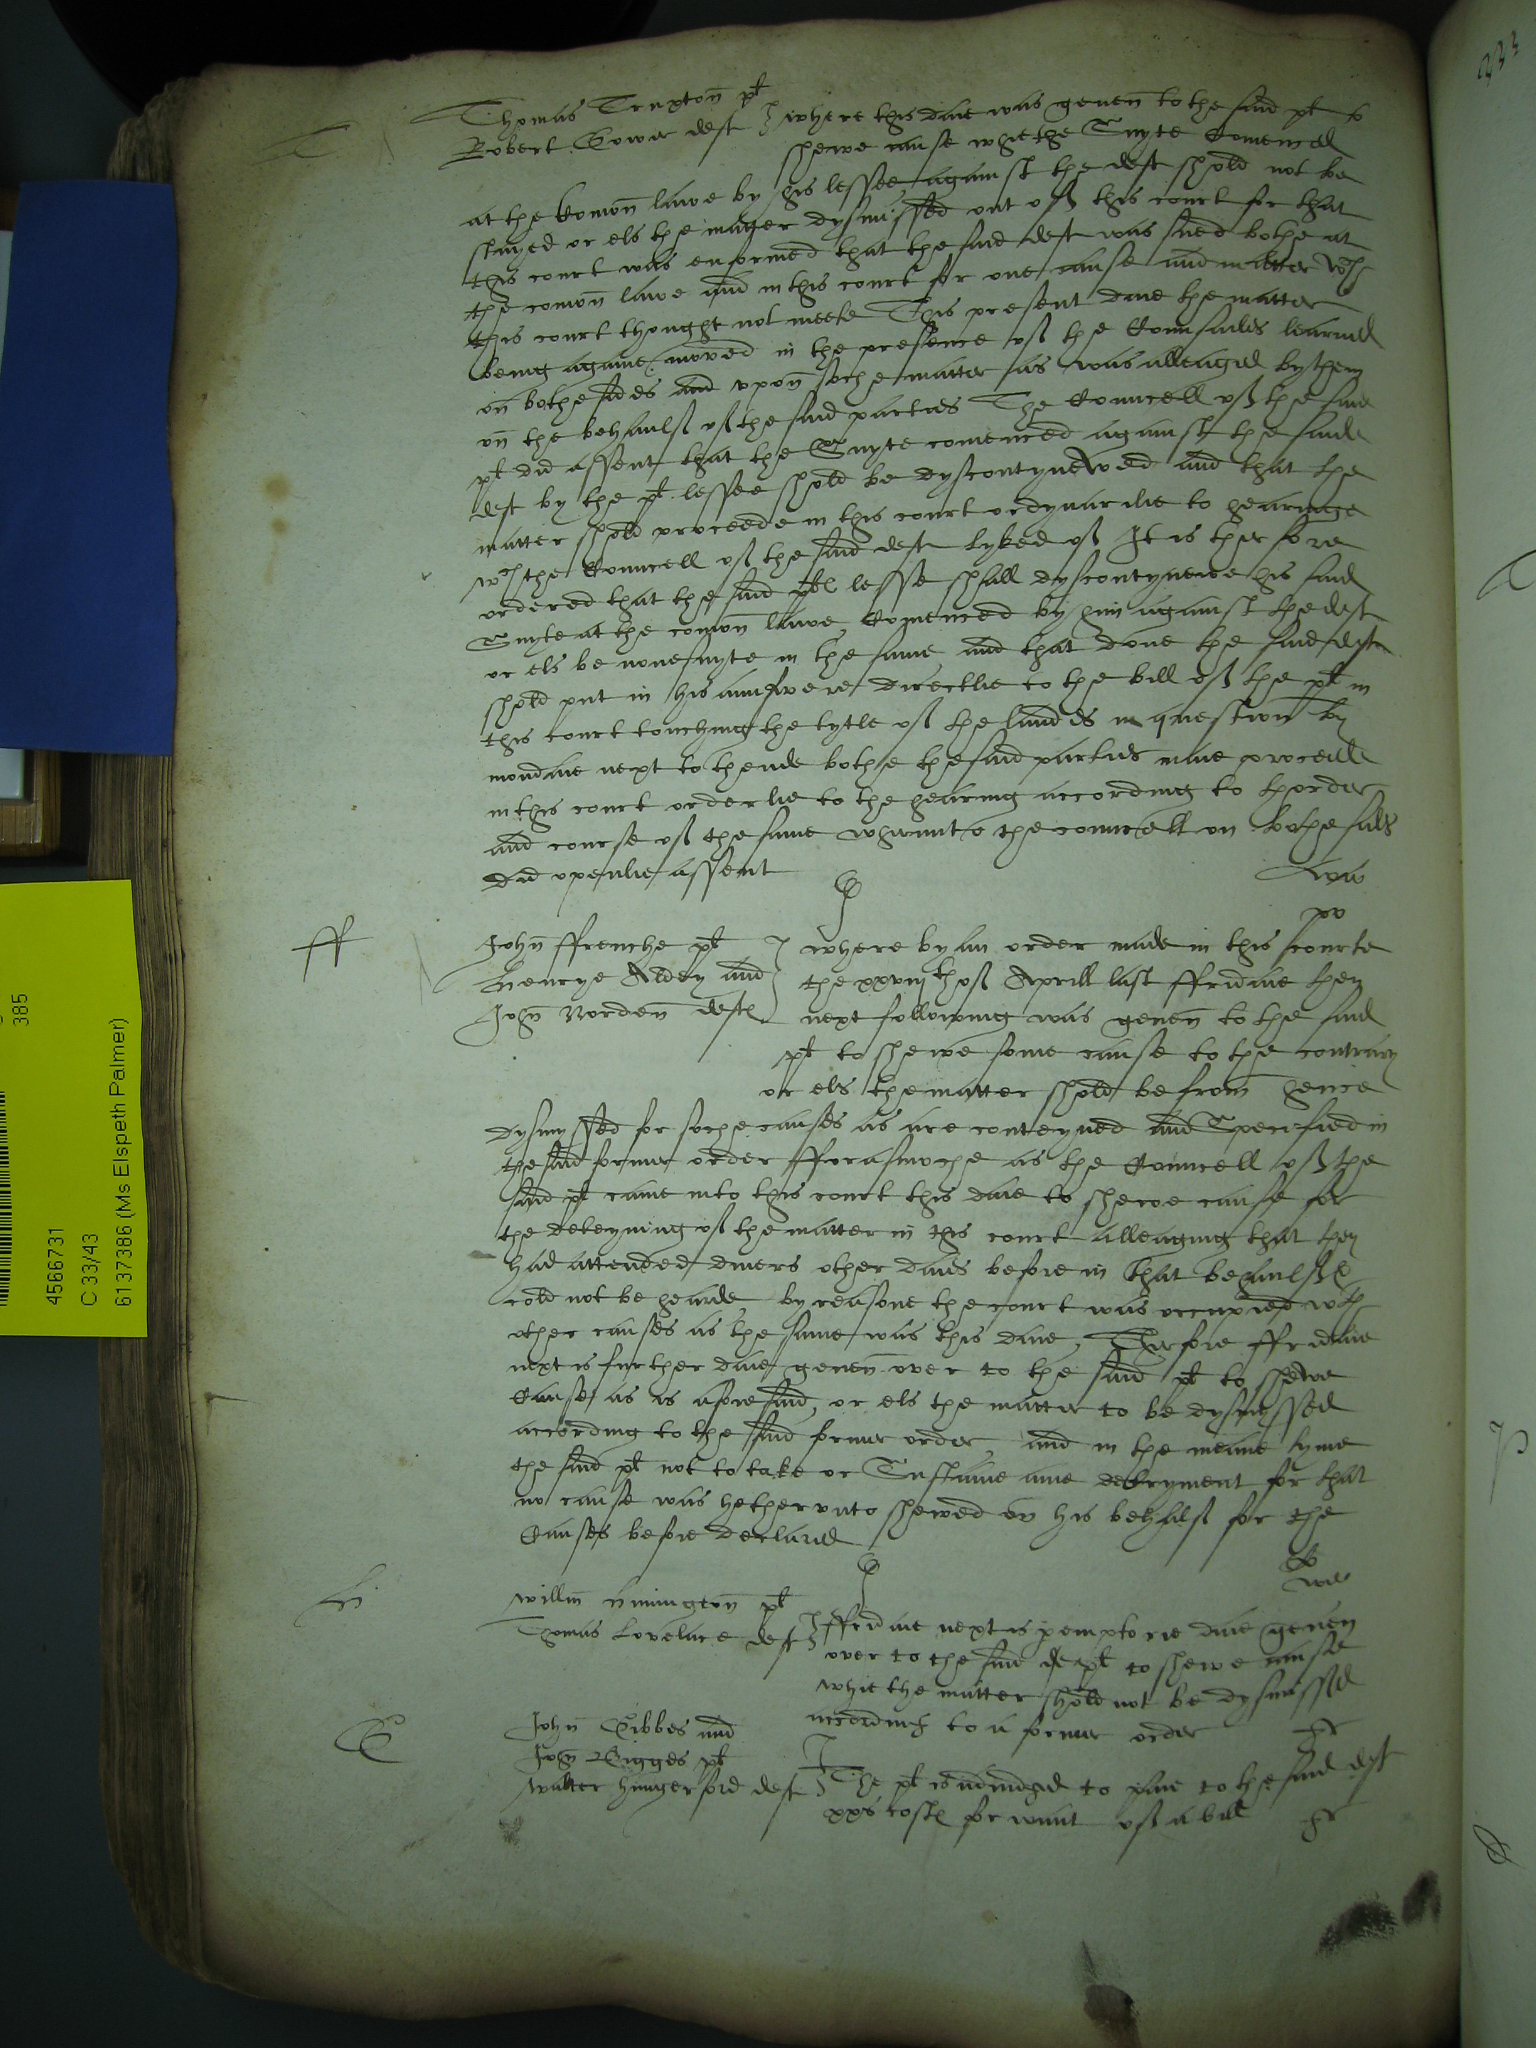 Thomas Truxton pt
Robert Gower deft
where this daie was geven to the said pt to
shewe cause whie the Suyte Comenced
at the Comon lawe by his lessee against the deft shold not be
stayed or els the matter dysmissed out of this court for that
this court was enformed that the said deft was sued bothe at
the comon lawe and in this court for one cause and matter wch
this court thought not meete This present daie the matter
being againe moved in the presence of the Counsailes learned
on bothe sides and vpon soche matter as was alleaged by them
on the behaulf of the said parties The Councell of the said
pt did assent that the Suyte comenced against the saide
deft by the pt lessee shold be dyscontynewed and that the
matter shold proceede in this court ordynarilie to hearinge
wch the Councell of the said deft lyked of It is therfore
ordered that the said ptes lesse shall dyscontynewe his said
Suyte at the comon lawe Comenced by him against the deft
or els be nonesuyte in the same and that done the said deft
shold put in his aunswere directlie to the bill of the pt in
this court touching the tytle of the landes in question by
mondaie next to thende bothe the said parties maie proceede
in this court orderlie to the hearing according to thorder
and course of the same wherunto the councell on bothe sides
did openlie assent
ff
John ffrenche pt
Henrye Aldey and
John Norden deftes
where by an order made in this courte
the xxviijth of Aprill last ffridaie then
next following was geven to the said
pt to shewe some cause to the contrary
or els the matter shold be from hence
dysmyssed for soche causes as are conteyned and Specified in
the said former order fforasmoche as the Councell of the
said pt came into this court this daie to shewe cause for
the deteyning of the matter in this court alleaging that they
had attended divers other daies before in that behaulf &
cold not be hearde by reasone the court was occupied wth
other causes as the same was this daie, Therfore ffridaie
next is further daie geven over to the said pt to shewe
Cause as is aforesaid, or els the matter to be dysmyssed
according to the said former order and in the meane tyme
the said pt not to take or Sustaine anie detryment for that
no cause was hetherunto shewed on his behalf for the
Causes before declared
Willm pt
Thomas Lovelace deft
ffridaie next is peremptorie daie geven
over to the said pt to shewe cause
whie the matter shold not be dysmissed
according to a former order
G
John Gibbes and
John Bigges pt
Walter Hungerford deft
The pt is adiudged to paie to the said deft
xxs costes for want of a bill
4566731
C 33/43
6137386 (Ms Elspeth Palmer)
385